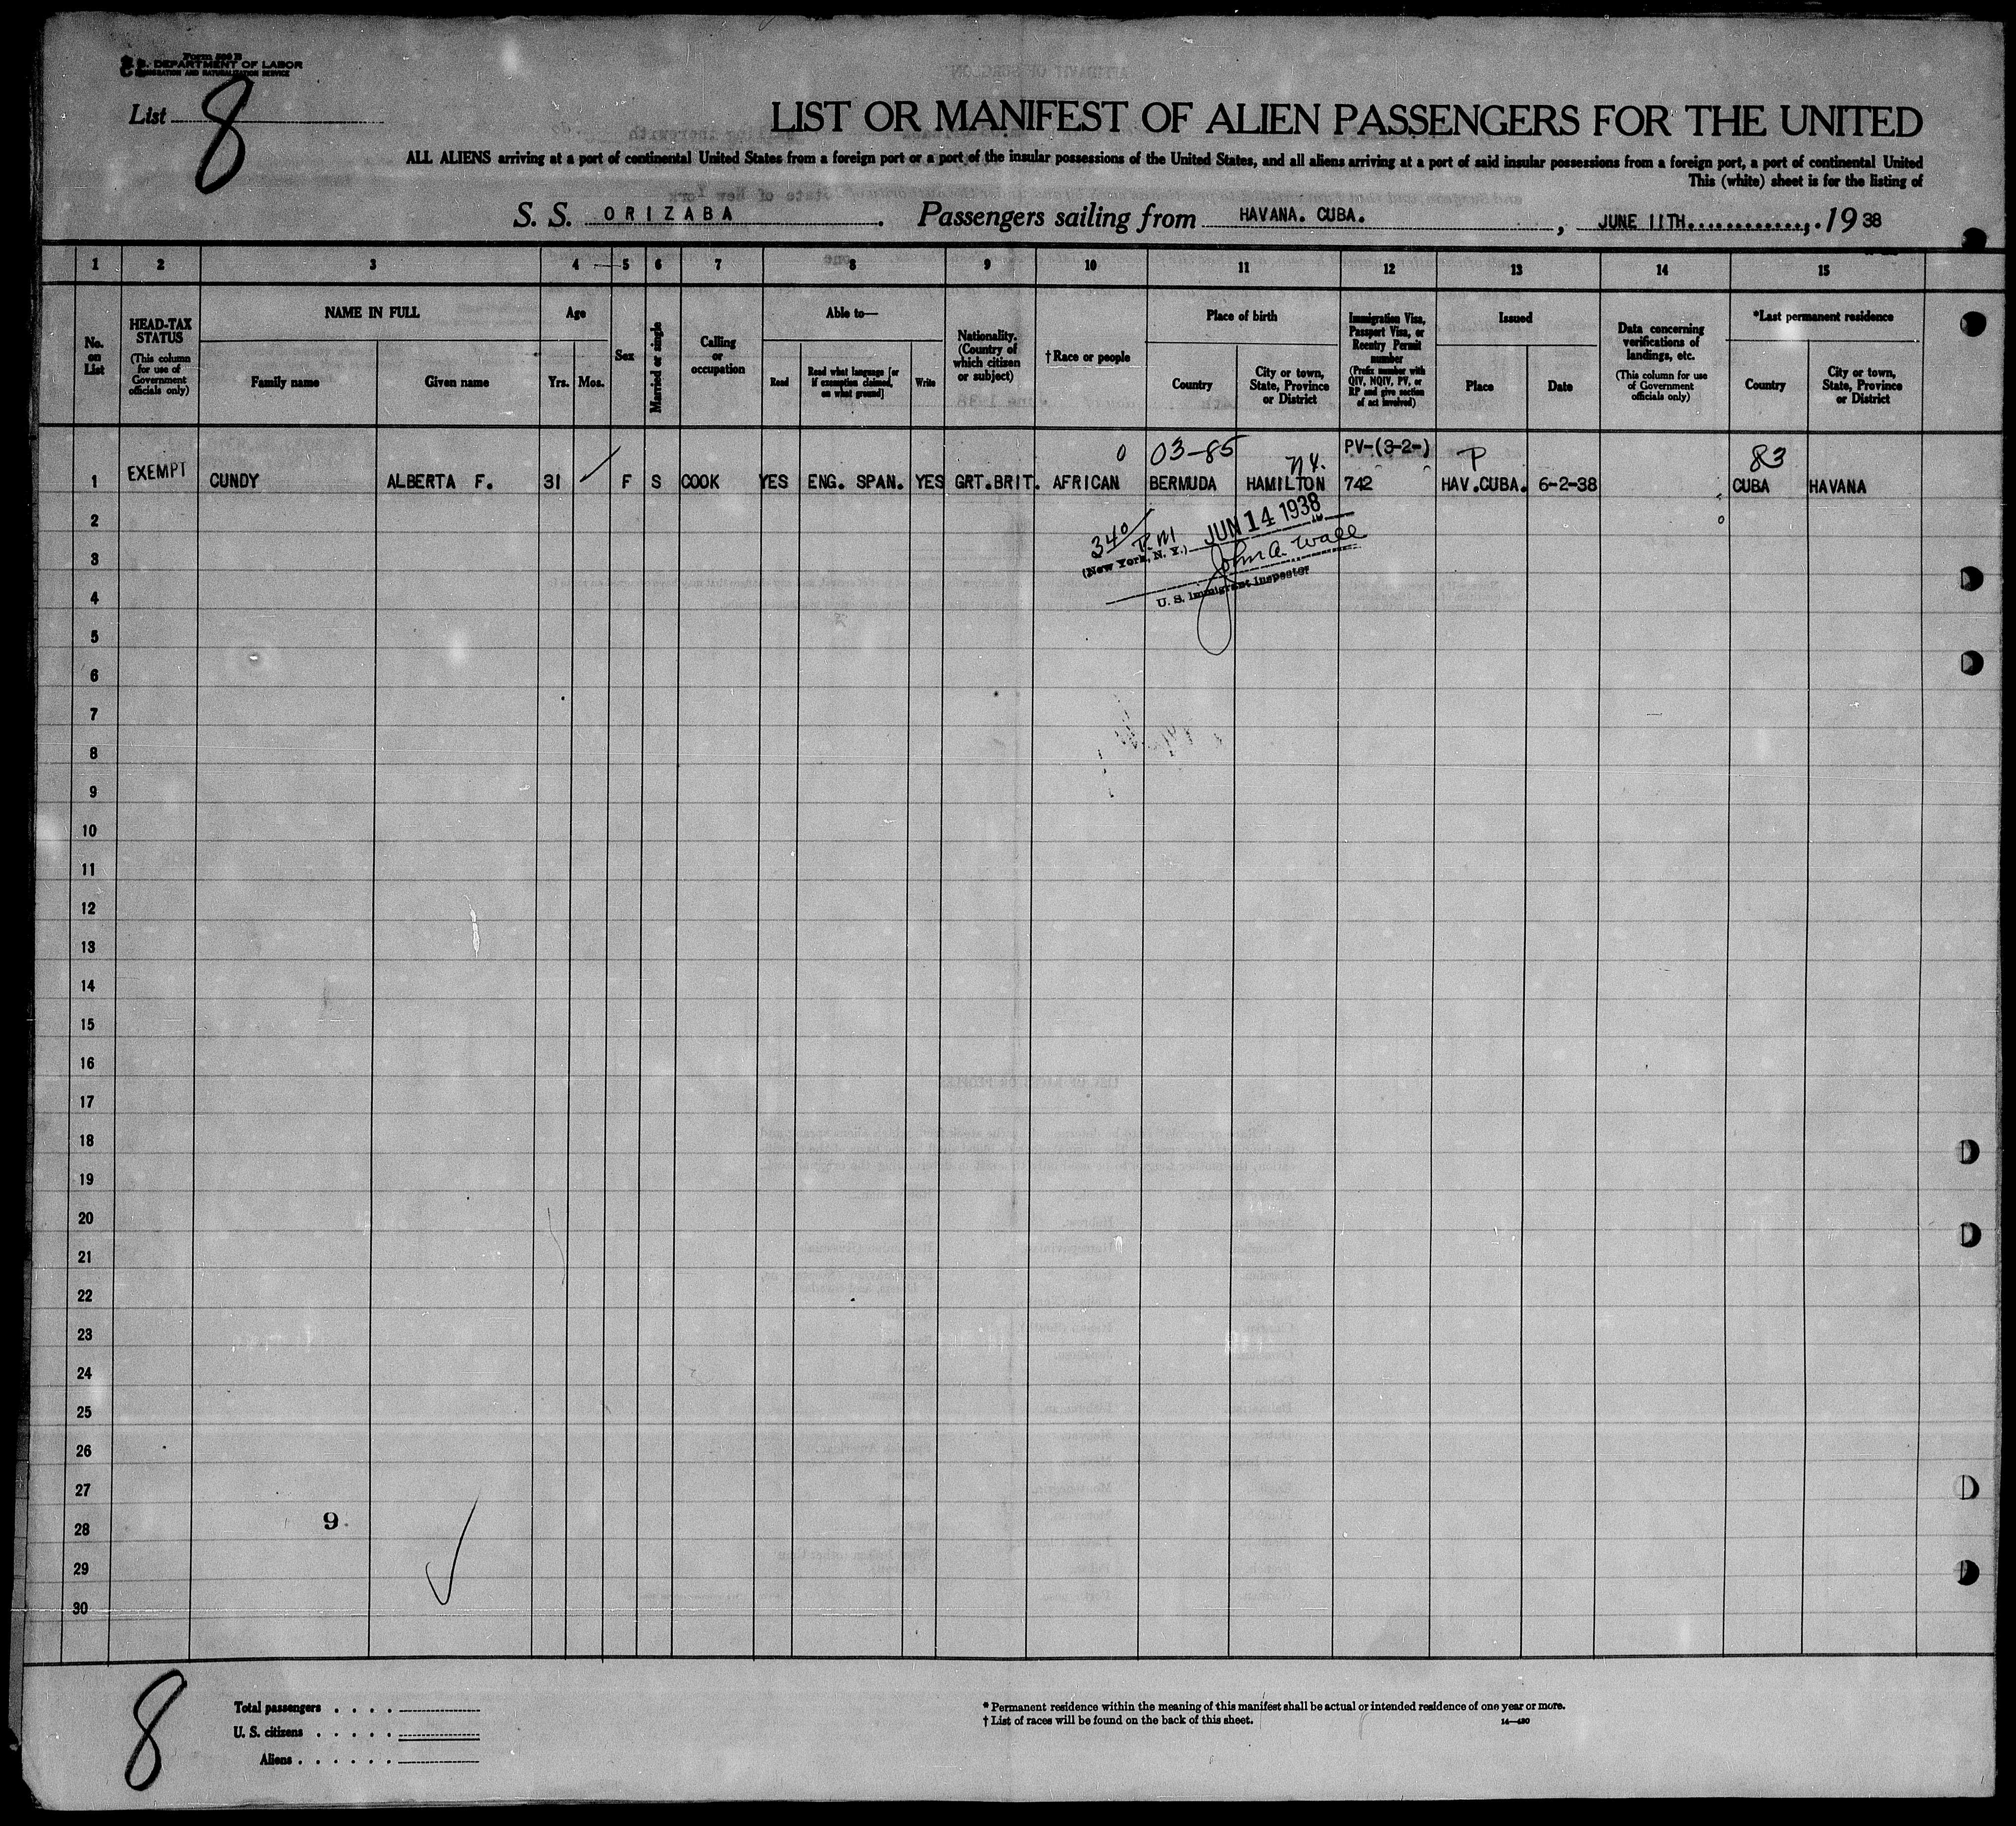 Form 500 B
U. S. DEPARTMENT OF LABOR
IMMIGRATION AND NATURALIZATION SERVICE
List 8
LIST OR MANIFEST OF ALIEN PASSENGERS FOR THE UNITED
ALL ALIENS arriving at a port of continental United States from a foreign port or a port of the insular possessions of the United States, and all aliens arriving at a port of said insular possessions from a foreign port, a port of continental United
This (white) sheet is for the listing of
S. S. ORIZABA. Passengers sailing from HAVANA. CUBA., JUNE 11TH.............,.1938
1 2 3 4 5 6 7 8 9 10 11 12 13 14 15
No. on List
HEAD-TAX STATUS
(This column for use of Government officials only)
NAME IN FULL
Family name
Given name
Age
Yrs. Mos.
Sex
Married or single
Calling or occupation
Able to—
Read
Read what language [or if exemption claimed, on what ground]
Write
Nationality. (Country of which citizen or subject)
† Race or people
Place of birth
Country
City or town, State, Province or District
Immigration Visa, Passport Visa, or Reentry Permit number
(Prefix number with QIV, NQIV, PV, or RP and give section of act involved)
Issued
Place
Date
Data concerning verifications of landings, etc.
(This column for use of Government officials only)
*Last permanent residence
Country
City or town, State, Province or District
0 03-85 n.y. PV-(3-2-) P 83
1 EXEMPT CUNDY ALBERTA F. 31 F S COOK YES ENG. SPAN. YES GRT.BRIT. AFRICAN BERMUDA HAMILTON 742 HAV.CUBA. 6-2-38 CUBA HAVANA
340
(New York, N. Y.) JUN 14 1938
John A. Wall
U. S. Immigrant Inspector
2
3
4
5
6
7
8
9
10
11
12
13
14
15
16
17
18
19
20
21
22
23
24
25
26
27
28 9
29
30
8
Total passengers . . . .
U. S. citizens . . . . .
Aliens . . . . . .
* Permanent residence within the meaning of this manifest shall be actual or intended residence of one year or more.
† List of races will be found on the back of this sheet.
14—430